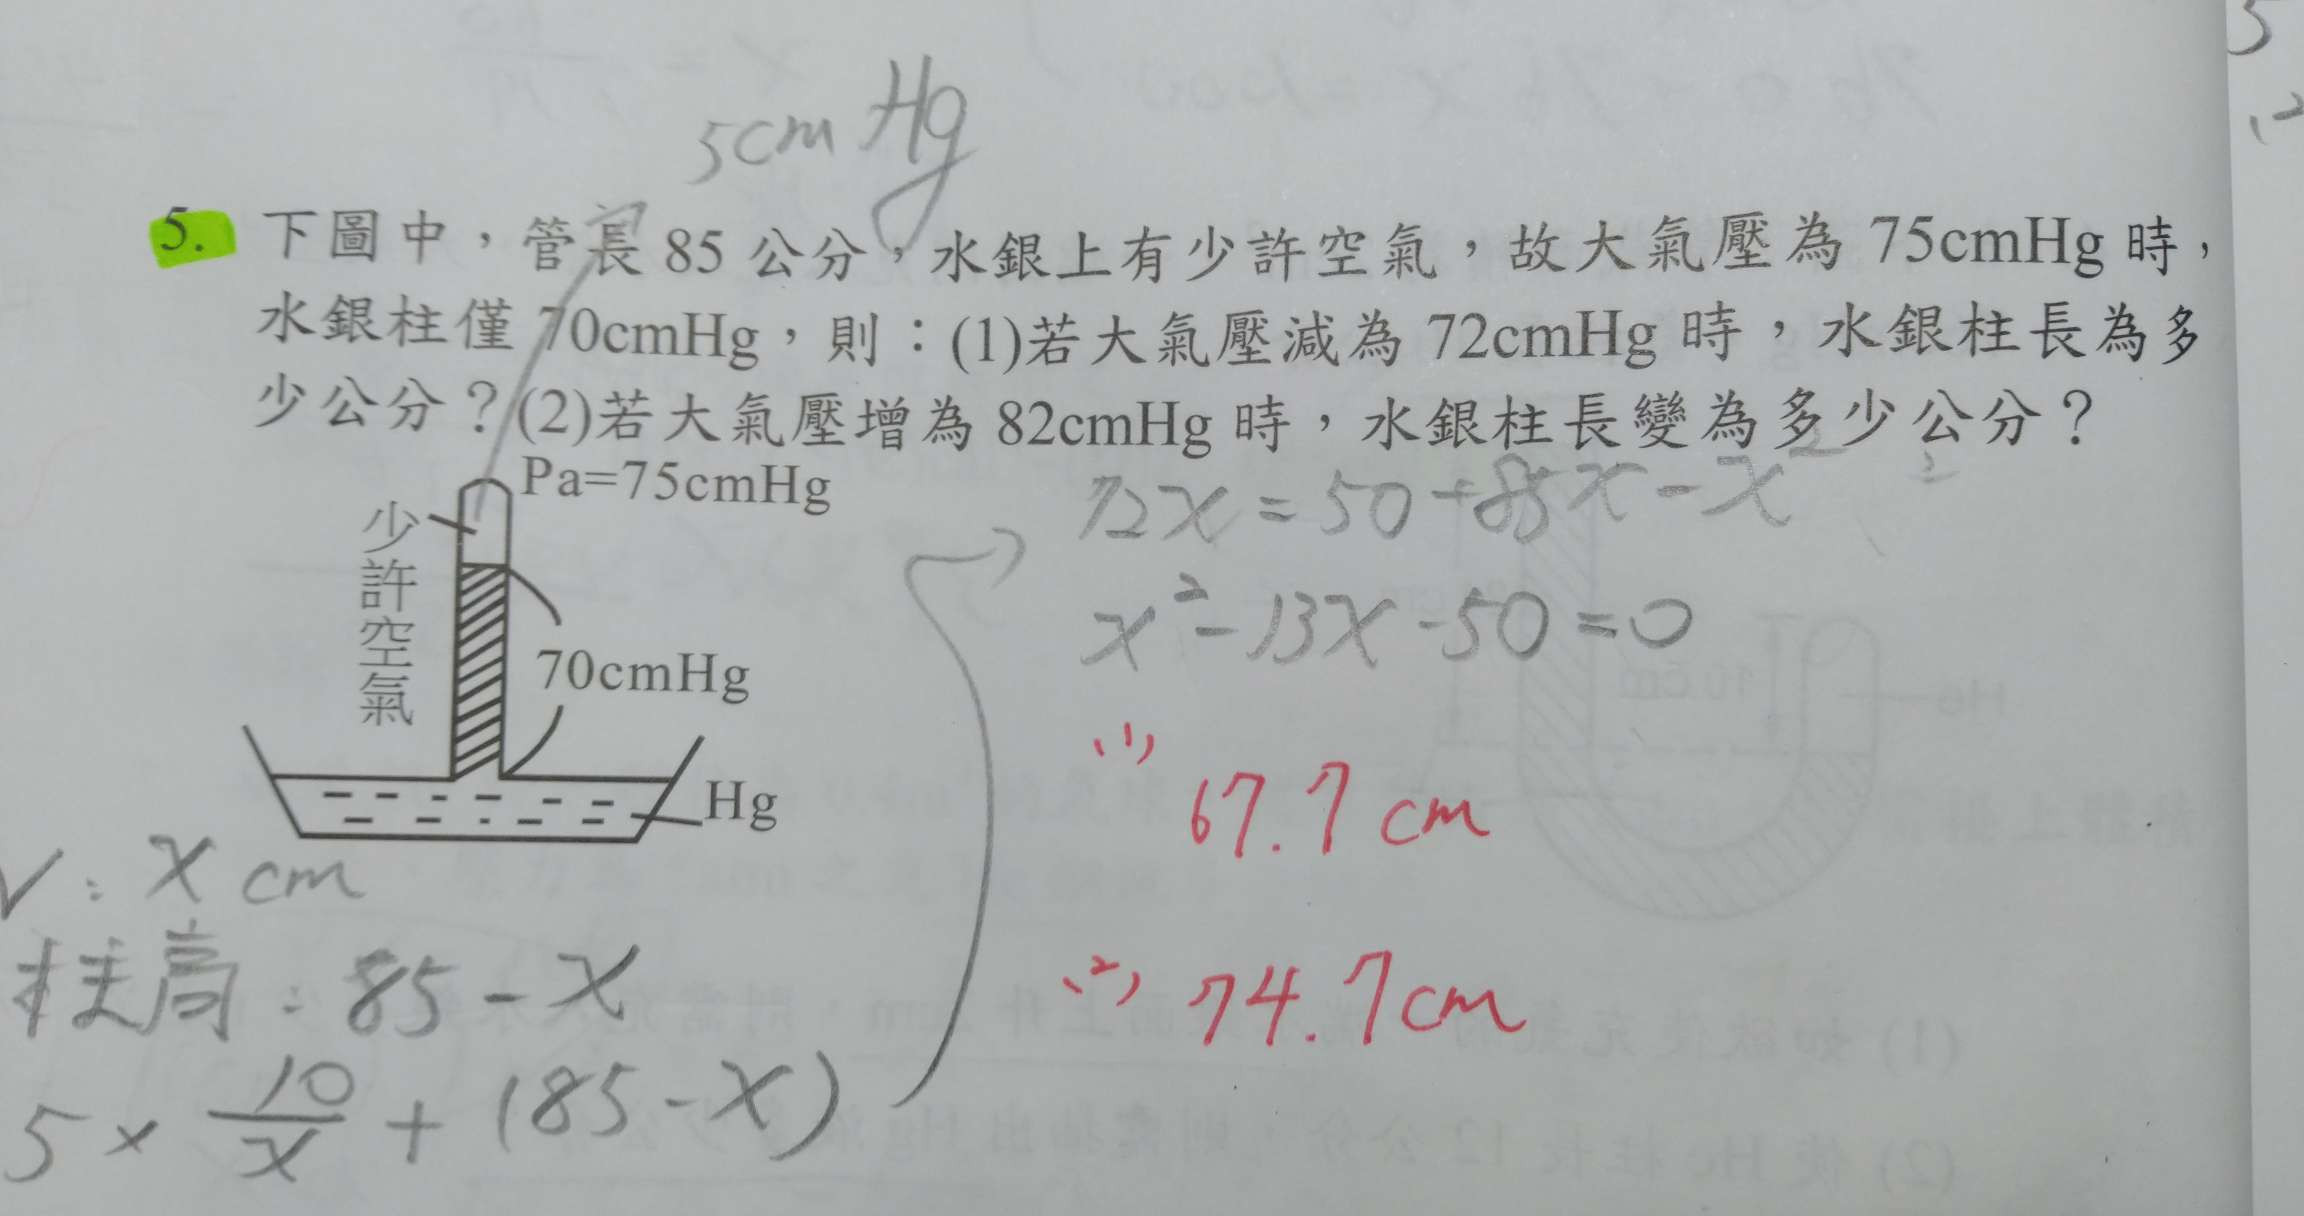 5cm Hg
5. 下圖中，管長 85 公分，水銀上有少許空氣，故大氣壓為 75cmHg 時，
水銀柱僅 70cmHg，則：(1)若大氣壓減為 72cmHg 時，水銀柱長為多
少公分？(2)若大氣壓增為 82cmHg 時，水銀柱長變為多少公分？
Pa=75cmHg
少許空氣
70cmHg
Hg
V：x cm
柱高：85－x
5 × 10/x + (85-x)
72x = 50+85x-x²
x²-13x-50=0
(1) 67.7 cm
(2) 74.7 cm